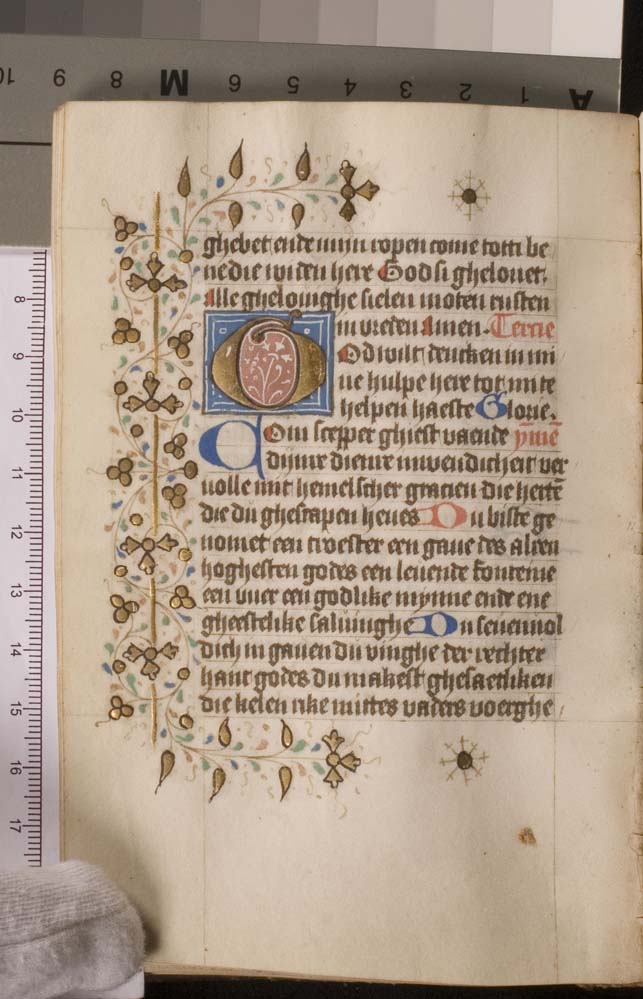 10 9 8 M 6 5 4 3 2 1 A
ghebet ende mijn ropen come totti be
nedie widen here God si ghelouet.
Alle ghelouighe sielen moten rusten
in vreden Amen. Tercie
God wilt dencken in mi
ne hulpe here tot mi te
helpen haeste Glorie.
Com scepper ghiest vaende ymē
dijnre dienre inwendicheit ver
volle mit hemelscher gracien die hertē
die du ghescapen heues Du biste ge
nomet een troester een gaue des alren
hoghesten godes een leuende fonteine
een vuer een godlike mynne ende ene
gheestelike saluinghe Du seuenuol
dich in gauen du vinghe der rechter
hant godes du makest ghesaetliken
die kelen rike mittes vaders voerghe
8
9
10
11
12
13
14
15
16
17